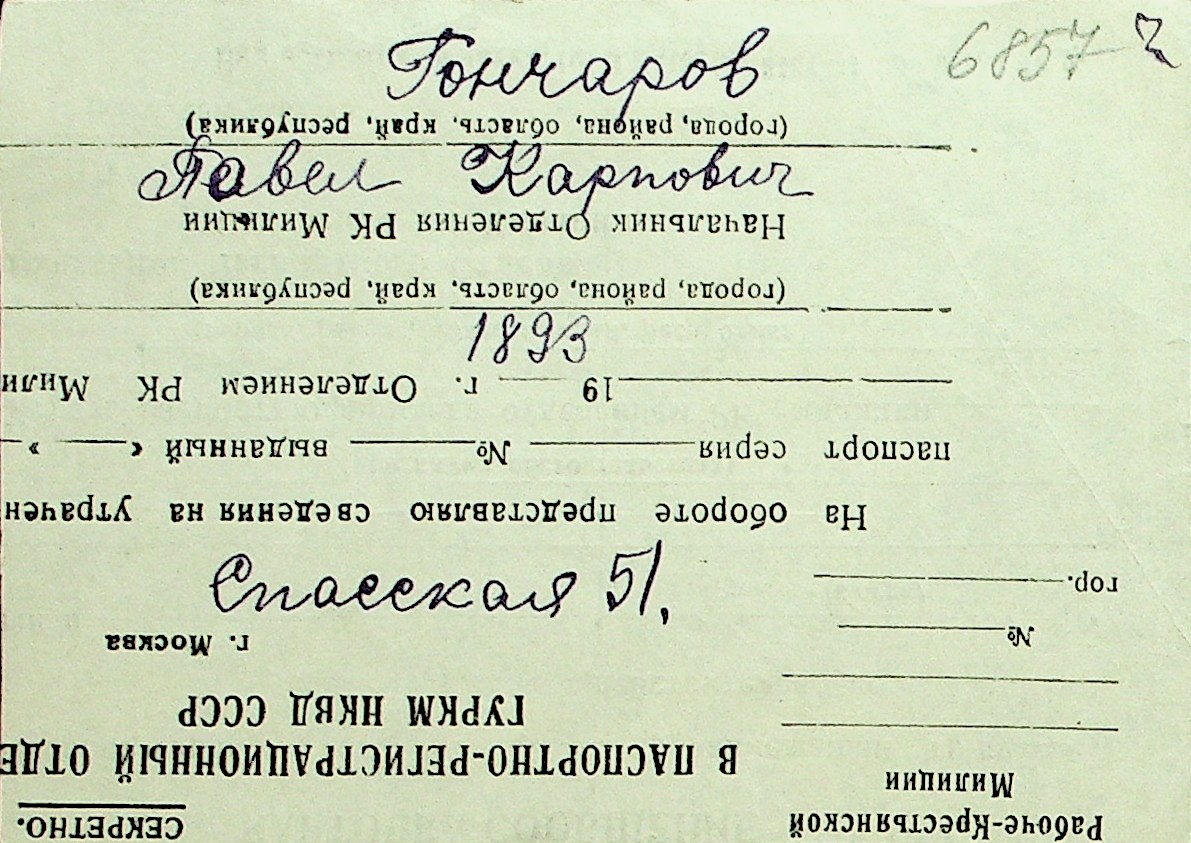 6857
Гончаров
Павел Карпович
1893
Спасская 51,
СЕКРЕТНО.
Рабоче-Крестьянской
Милиции
В ПАСПОРТНО-РЕГИСТРАЦИОННЫЙ ОТДЕ
ГУРКМ НКВД СССР
г. Москва
№
гор.
На обороте представляю сведения на утрачен
паспорт серия № выданный « »
19 г. Отделением РК Мили
(города, района, область, край, республика)
Начальник Отделения РК Милиции
(города, района, область, край, республика)